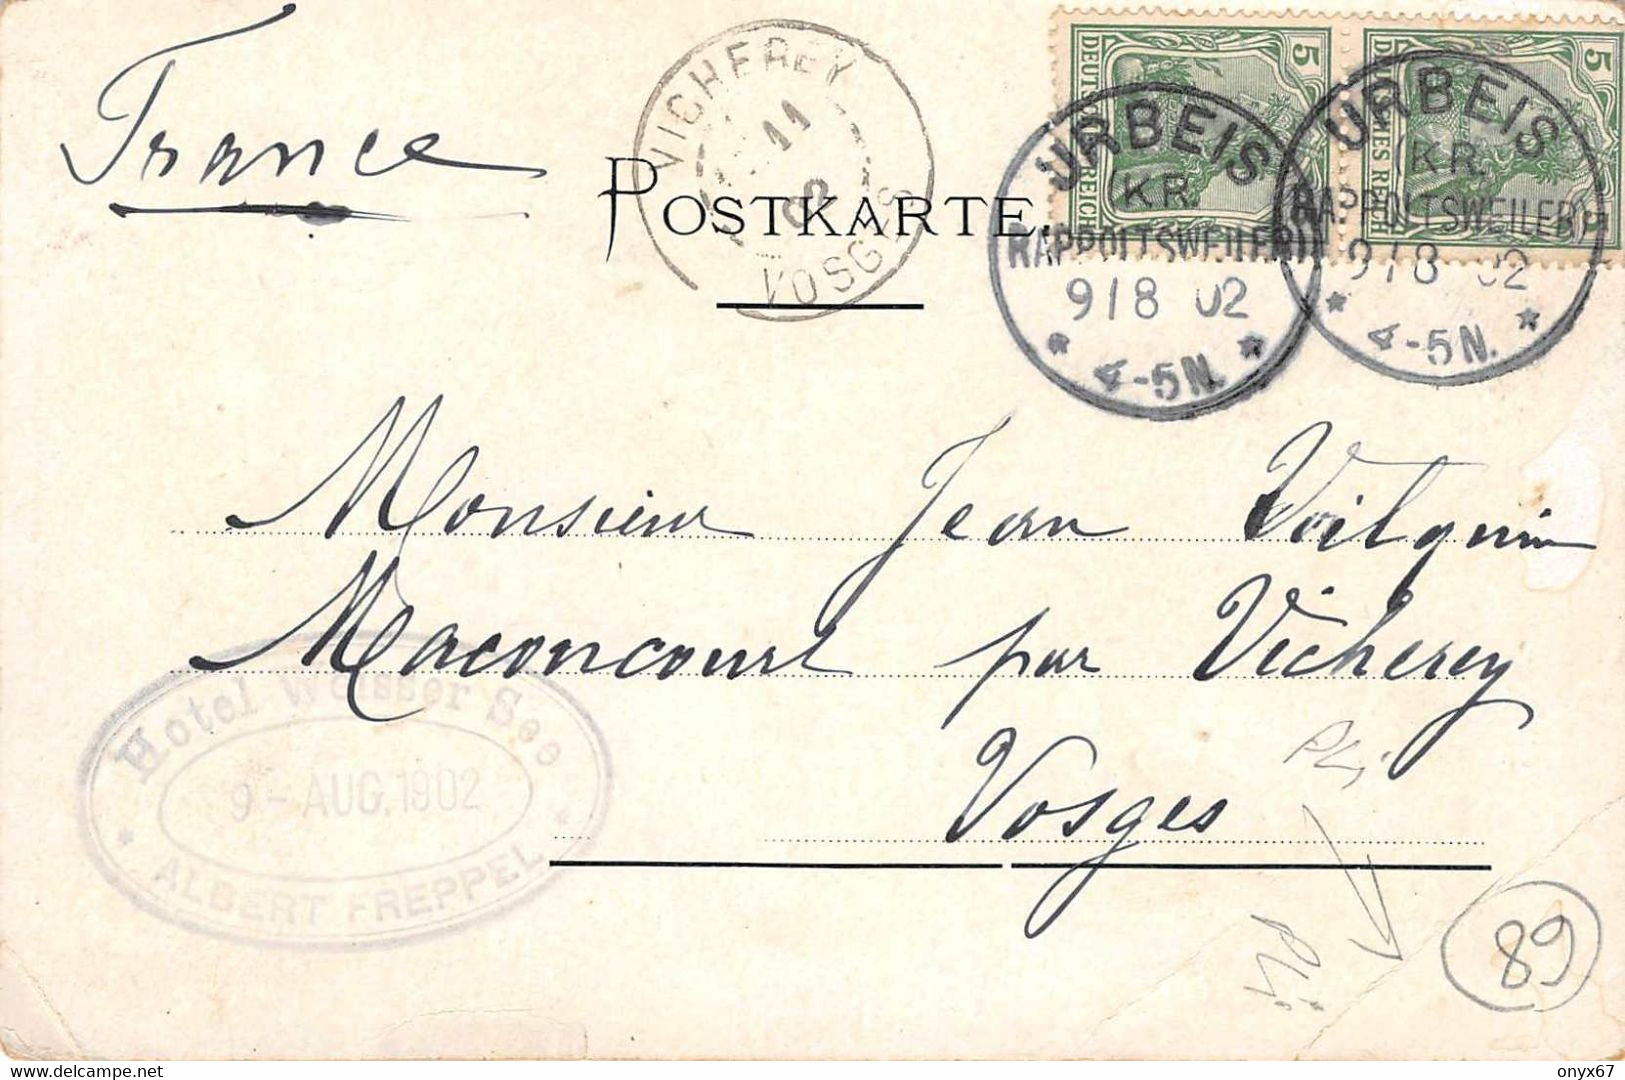 France
VICHEREY
11
02
VOSGES
POSTKARTE.
5
DEUTSCHES REICH
5
DEUTSCHES REICH
URBEIS
(KR.
RAPPOLTSWEILER)
9/8 02
* 4-5N. *
URBEIS
(KR.
RAPPOLTSWEILER)
9/8 02
* 4-5N. *
Monsieur Jean Voilquin
Maconcourt par Vicherey
Vosges
Hotel Weisser See
9 - AUG. 1902
* ALBERT FREPPEL *
Pli
Pli
89
delcampe.net
onyx67